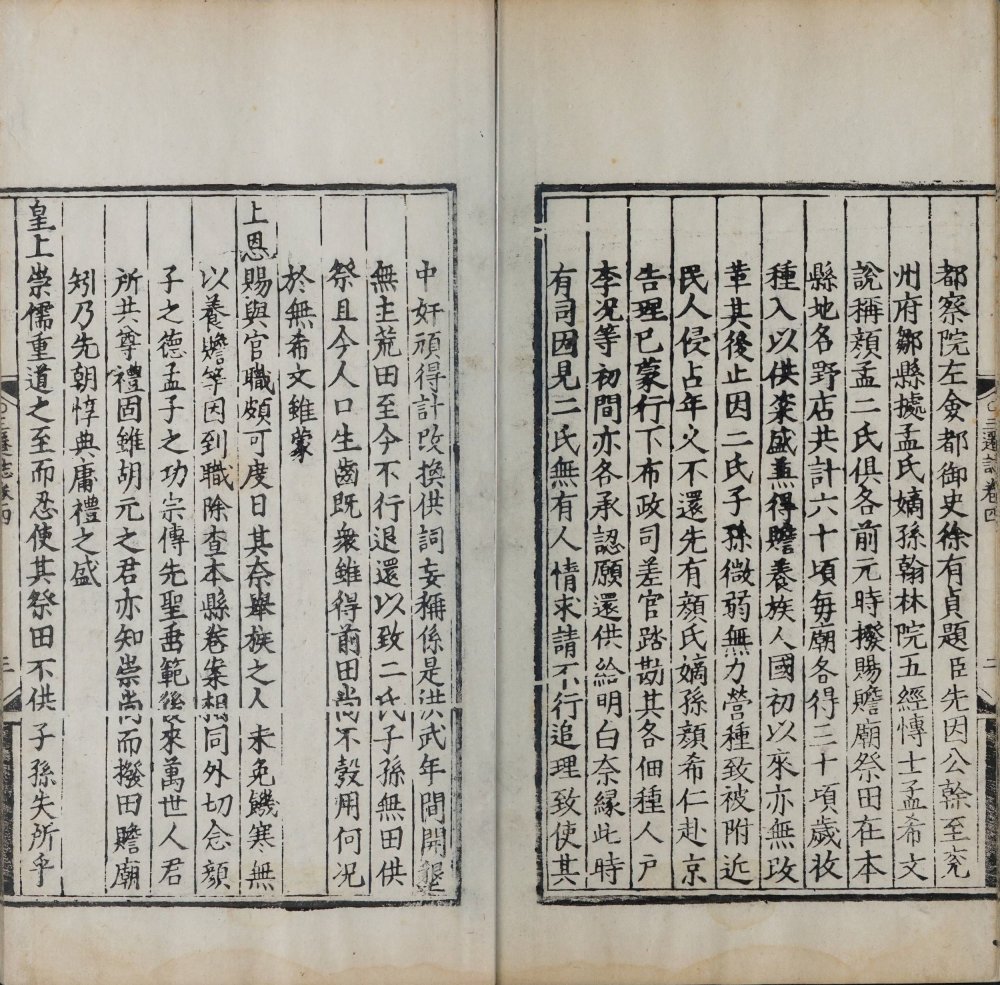 都察院左僉都御史徐有貞題臣先因公幹至兖
州府鄒縣據孟氏嫡孫翰林院五經愽士孟希文
說稱顔孟二氏俱各前元時撥賜贍廟祭田在本
縣地各野店共計六十頃每廟各得三十頃歲收
種入以供粢盛羔得贍養族人國初以來亦無改
革其後止因二氏子孫微弱無力營種致被附近
民人侵占年乆不還先有顔氏嫡孫顔希仁赴京
告理已蒙行下布政司差官踏勘其各佃種人户
李况等初間亦各承認願還供給明白奈緣此時
有司因見二氏無有人情求請不行追理致使其
三遷誌卷四
二
中奸頑得計改換供詞妄稱係是洪武年間開墾
無主荒田至今不行退還以致二氏子孫無田供
祭且今人口生齒既衆雖得前田尚不彀用何况
於無希文雖蒙
上恩賜與官職頗可度日其奈舉族之人未免饑寒無
以養贍等因到職除查本縣卷案相同外切念顔
子之德孟子之功宗傳先聖垂範後來萬世人君
所共尊禮固雖胡元之君亦知崇尚而撥田贍廟
矧乃先朝惇典庸禮之盛
皇上崇儒重道之至而忍使其祭田不供子孫失所乎
三遷誌卷四
三